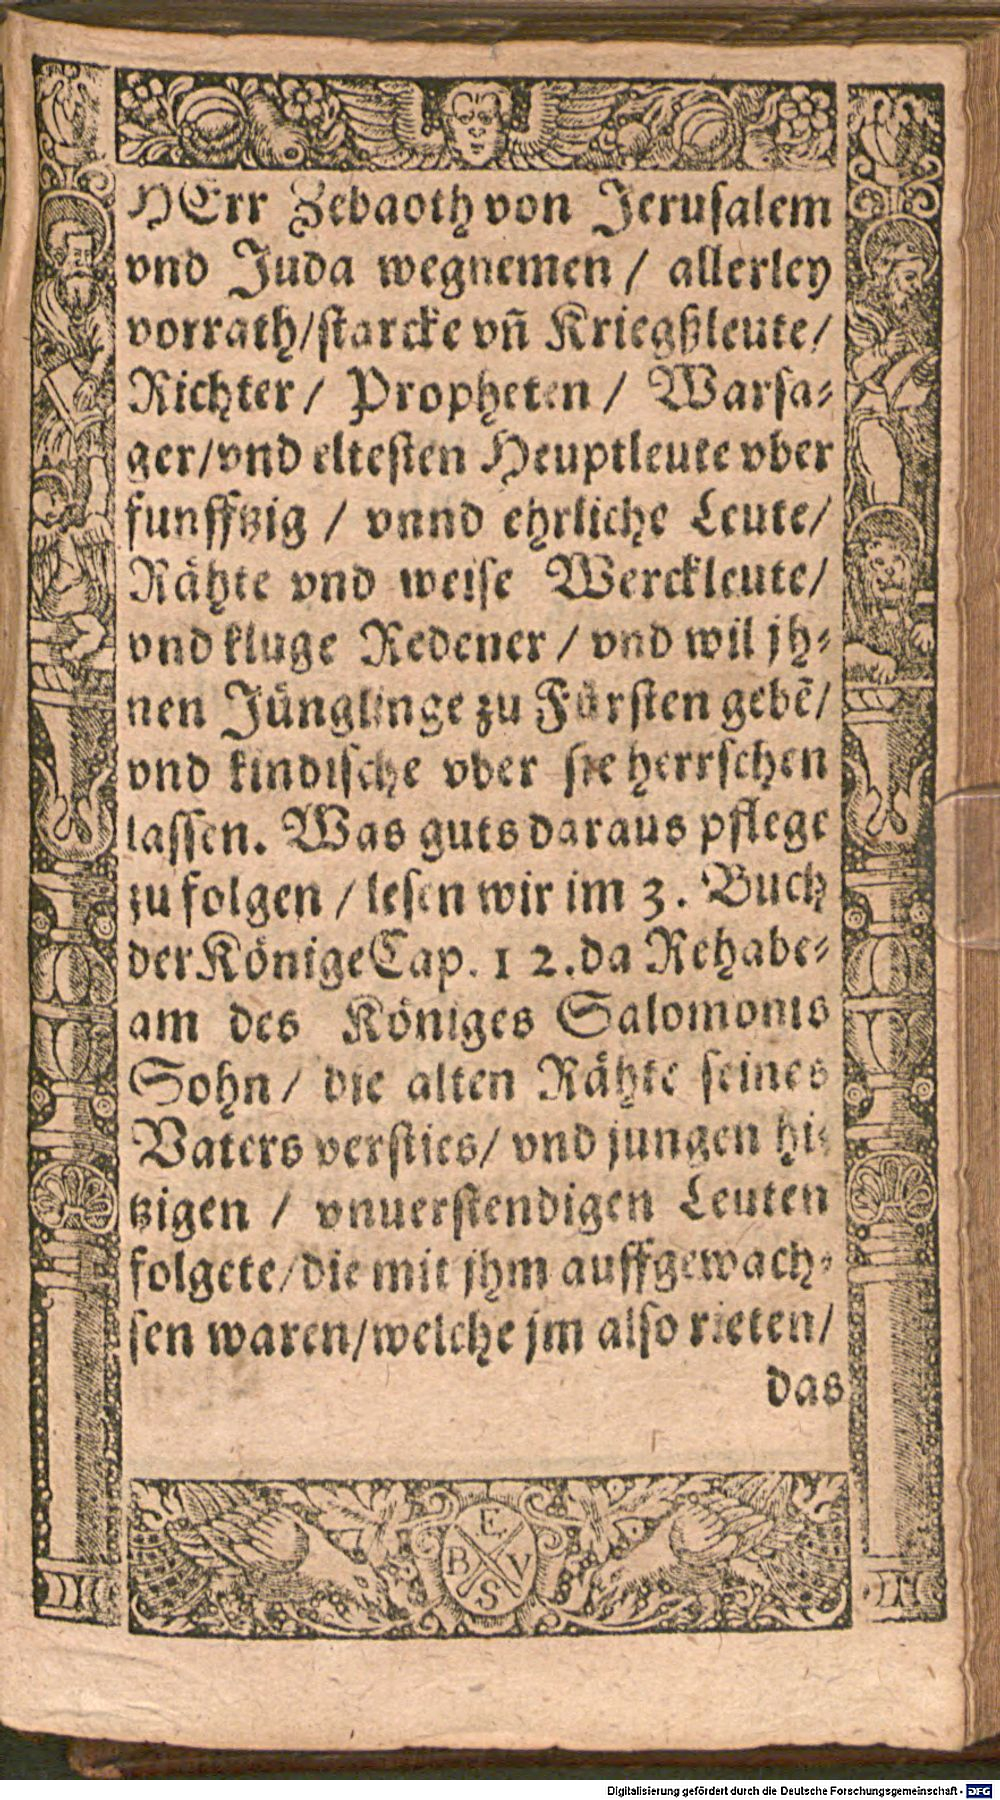 HErr Zebaoth von Jerusalem
vnd Juda wegnemen / allerley
vorrath/starcke vñ Kriegßleute/
Richter / Propheten / Warsa-
ger/vnd eltesten Heuptleute vber
funfftzig / vnnd ehrliche Leute/
Rähte vnd weise Werckleute/
vnd kluge Redener / vnd wil jh-
nen Jünglinge zu Fürsten gebẽ/
vnd kindische vber sie herrschen
lassen. Was guts daraus pflege
zu folgen / lesen wir im 3. Buch
der Könige Cap. 12. da Rehabe-
am des Königes Salomonis
Sohn / die alten Rähte seines
Vaters versties/ vnd jungen hi-
tzigen / vnuerstendigen Leuten
folgete/die mit jhm auffgewach-
sen waren/welche jm also rieten/
das
E
B V
S
Digitalisierung gefördert durch die Deutsche Forschungsgemeinschaft - DFG